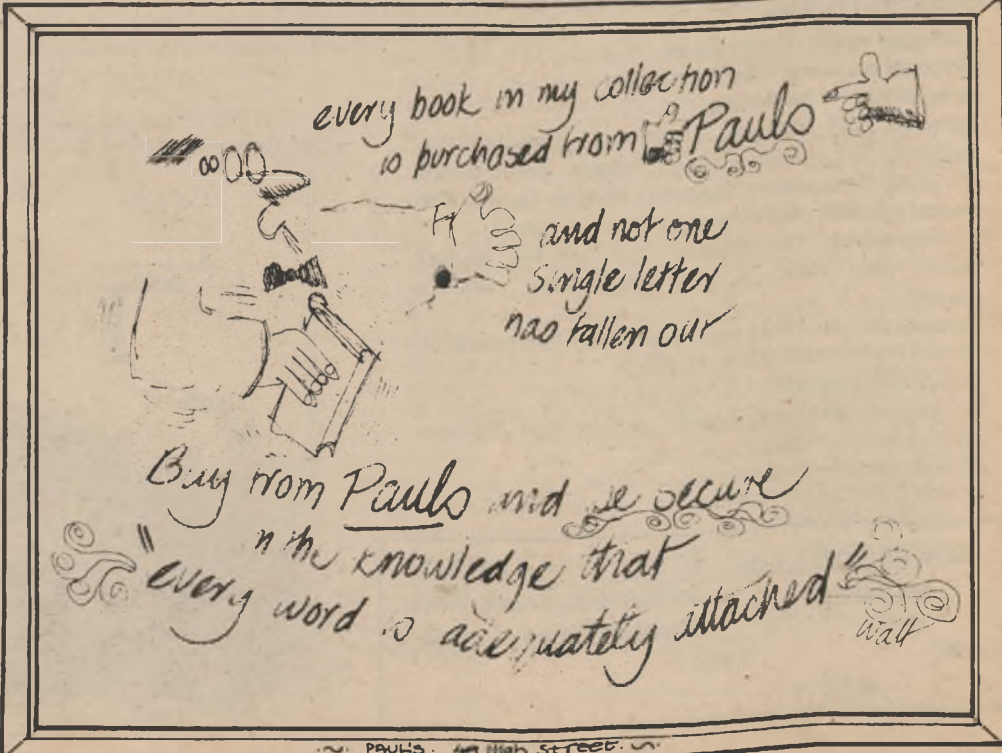 every book in my collection
is purchased from Pauls
and not one
single letter
has fallen out
Buy from Pauls and be secure
in the knowledge that
"every word is adequately attached"
Walt
PAUL'S. HIGH STREET.